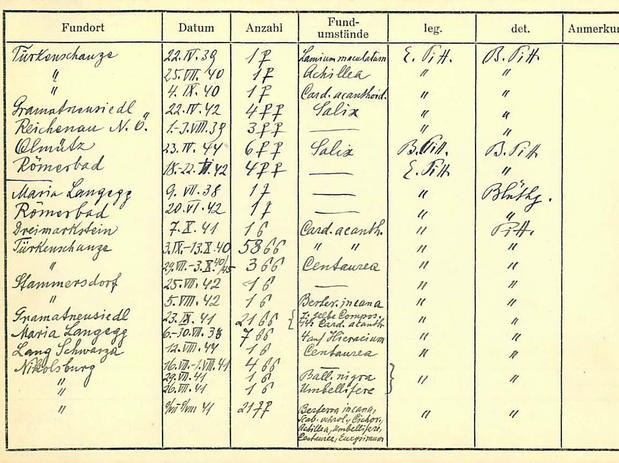 Fundort Datum Anzahl Fund-umstände leg. det. Anmerku
Türkenschanze 22.IV.39 1♀ Lamium maculatum E. Pitt. B. Pitt
" 25.VII.40 1♀ Achillea " "
" 4.IX.40 1♀ Card. acanthoid. " "
Gramatneusiedl 22.IV.42 4♀♀ Salix " "
Reichenau N.Ö. 1.-J.VIII.39 3♀♀ — " "
Olmütz 23.IV.44 6♀♀ Salix B. Pitt. B. Pitt
Römerbad 18.-22. .42 4♀♀ — E. Pitt. "
Maria Langegg 9.VII.38 1♀ — " Blüthg.
Römerbad 20.VI.42 1♀ — " "
Dreimarkstein 7.X.41 1♂ Card. acanth. " Pitt.
Türkenschanze 3.IX.-13.X.40 58♂♂ " " " "
" 29.VII.-3.X.40/45 3♂♂ Centaurea " "
Stammersdorf 25.VII.42 1♂ — " "
" 5.VIII.42 1♂ Berter. incana " "
Gramatneusiedl 23.IX.41 21♂♂ { gelbe Compos., Card. acanth " "
Maria Langegg 6.-30.VII.38 7♂♂ 4 auf Hieracium " "
Lang Schwarza 12.VIII.44 1♂ Centaurea " "
Nikolsburg 16.VII.-1.VIII.41 4♂♂ —
" 29.VII.41 1♂ Ball. nigra } " "
" 26.VII.41 1♂ Umbellifere
" 41 21♀♀ Berteroa incana, " "
Achillea, Umbellifere,
Centaurea,